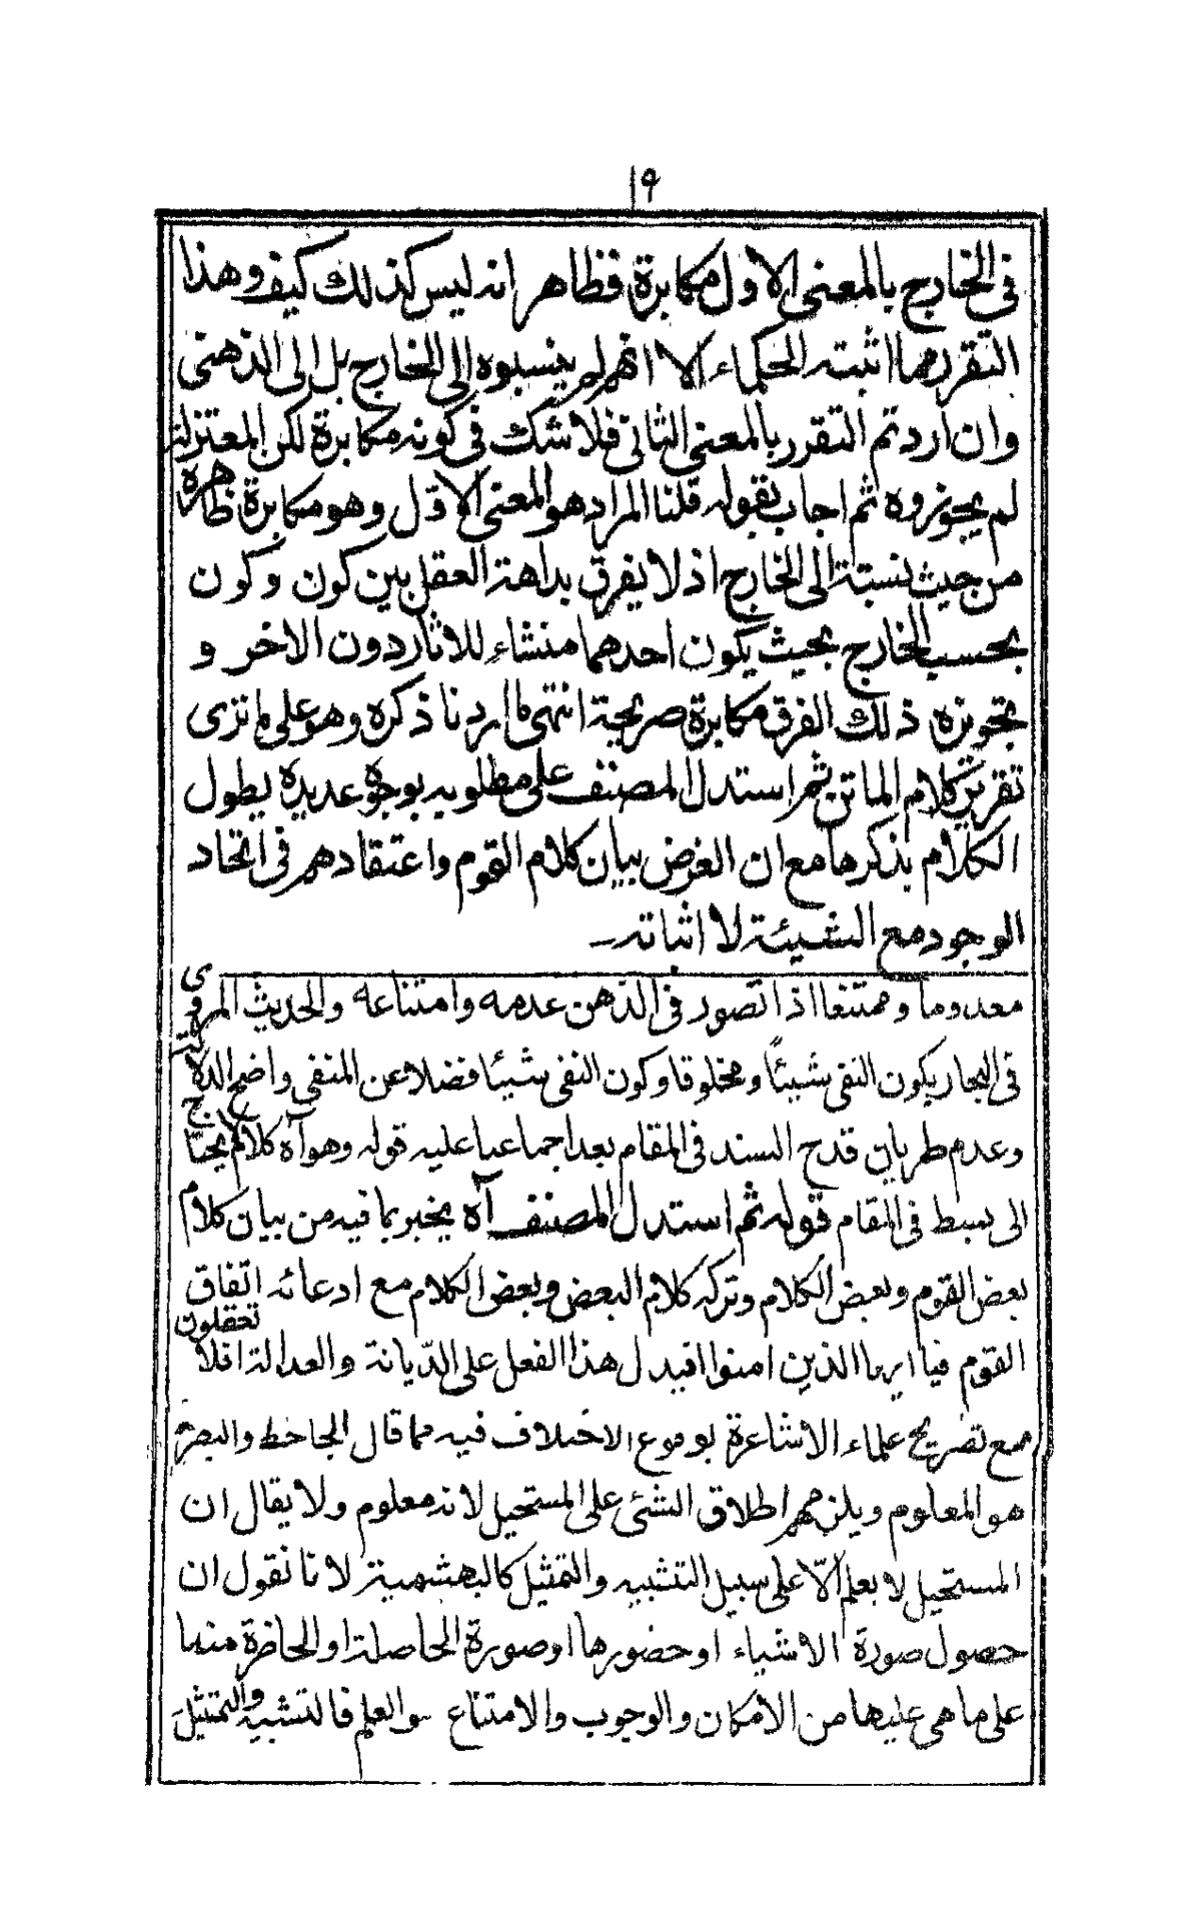 ١٩
فى الخارج بالمعنى الاول مكابرة فظاهر انه ليس كذلك كيف وهذا
التقرر مما اثبته الحكماء الا انهم لم ينسبوه الى الخارج بل الى الذهنى
وان اردتم التقرر بالمعنى الثانى فلا شك فى كونه مكابرة لكن المعتزلة
لم يجوزوه ثم اجاب بقوله قلنا المراد هو المعنى الاول وهو مكابرة ظاهرة
من حيث نسبته الى الخارج اذ لا يفرق بداهة العقل بين كون وكون
بحسب الخارج بحيث يكون احدهما منشاء للاثار دون الاخر و
تجويزه ذلك الفرق مكابرة صريحة انتهى ما اردنا ذكره وهو على ما ترى
تقرير كلام الماتن ثم استدل المصنف على مطلوبه بوجوه عديدة يطول
الكلام بذكرها مع ان الغرض بيان كلام القوم واعتقادهم فى اتحاد
الوجود مع الشيئية لا اثباته
معدوما وممتنعا اذا تصور فى الذهن عدمه وامتناعه والحديث المروى
فى البحار يكون النفى شيئًا ومخلوقا وكون النفى شيئا فضلا عن المنفى واضح الدلالة
وعدم طريان قدح السند فى المقام بعد اجماعيا عليه قوله وهو آه كلام يحتاج
الى بسط فى المقام قوله ثم استدل المصنف آه يخبر بما فيه من بيان كلام
بعض القوم وبعض الكلام وتركه كلام البعض وبعض الكلام مع ادعائه اتفاق
القوم فيا ايها الذين امنوا افيدل هذا الفعل على الديانة والعدالة افلا تعقلون
مع تصريح علماء الاشاعرة بوقوع الاختلاف فيه مما قال الجاحظ والبصرة
هو المعلوم ويلزمهم اطلاق الشئ على المستحيل لانه معلوم ولا يقال ان
المستحيل لا يعلم الّا على سبيل التشبيه والتمثيل كالبهشمية لانا نقول ان
حصول صورة الاشياء او حضورها او صورة الحاصلة او الحاضرة منها
على ما هى عليها من الامكان والوجوب والامتناع هو العلم فالتشبيه والتمثيل